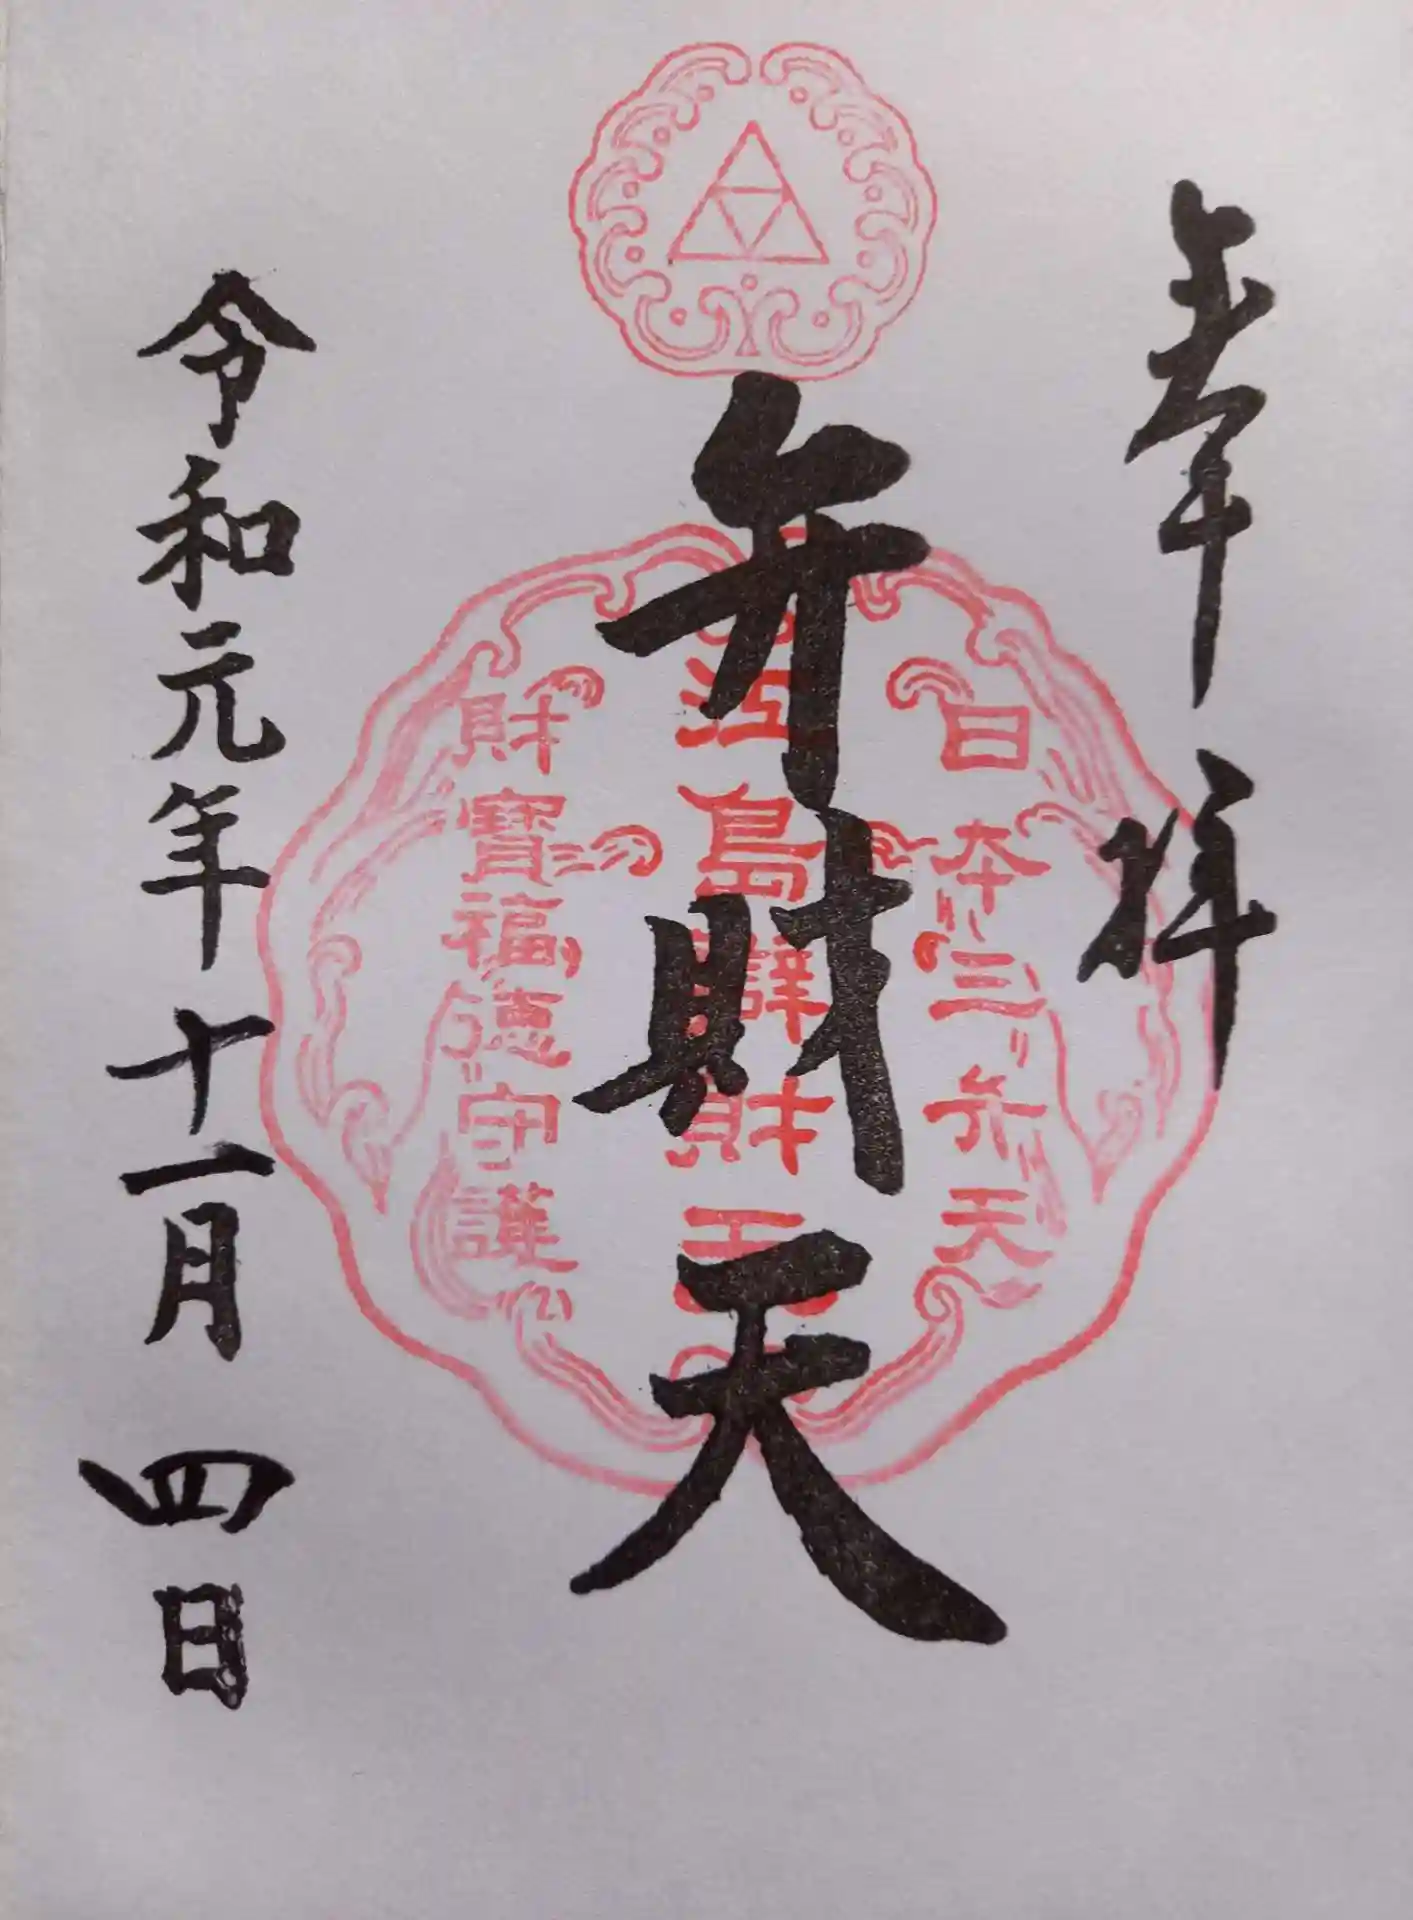 奉拝
弁財天
日本三弁天
江島辯財天
財寶福徳守護
令和元年十一月四日